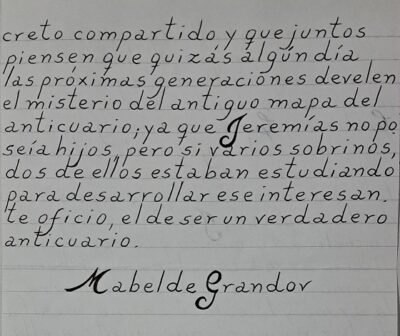 creto compartido y que juntos
piensen que quizás algún día
las próximas generaciones develen
el misterio del antiguo mapa del
anticuario; ya que Jeremías no po
seía hijos, pero si varios sobrinos,
dos de ellos estaban estudiando
para desarrollar ese interesan.
te oficio, el de ser un verdadero
anticuario.
Mabel de Grandov